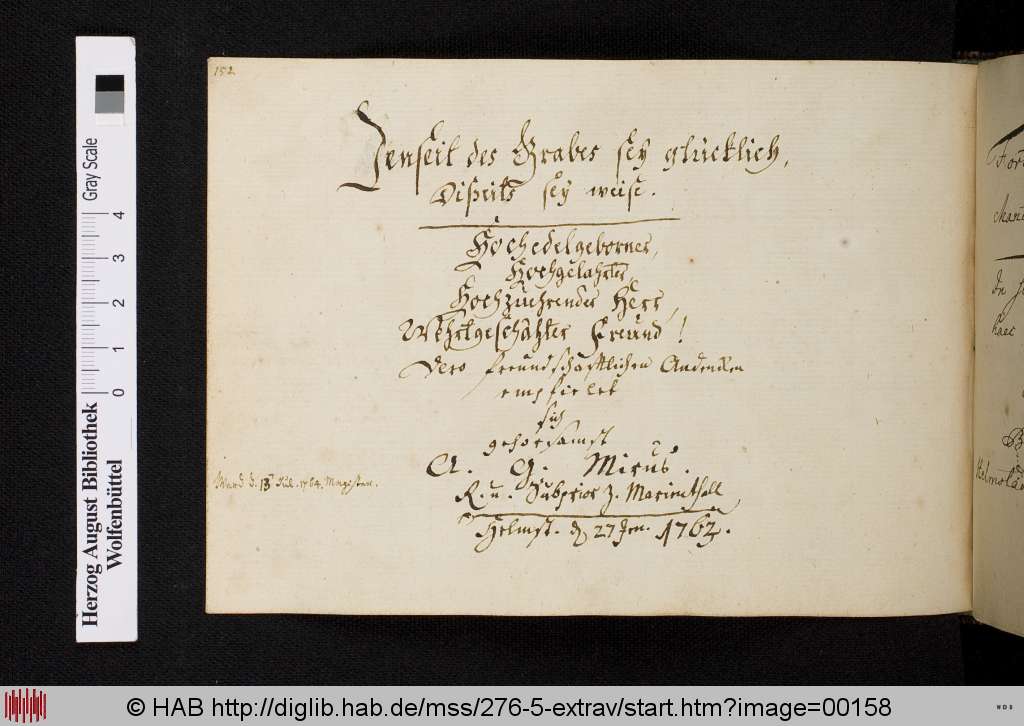 152
Jenseit des Grabes sey glücklich,
Dißeits sey weise.
Hochedelgeborner,
Hochgelahrter,
Hochzuehrender Herr,
Wehrtgeschätzter Freund!
Dero freundschaftlichen Andencken
empfielet
sich
gehorsamst
A. G. Mirus.
R. u. Subprior z. Marienthall,
Helmst. d 27 Jen. 1762.
Ward d. 13 Jul. 1764. Magister.
Herzog August Bibliothek
Wolfenbüttel
0 1 2 3 4
Gray Scale
Fort
haec
© HAB http://diglib.hab.de/mss/276-5-extrav/start.htm?image=00158
WDB